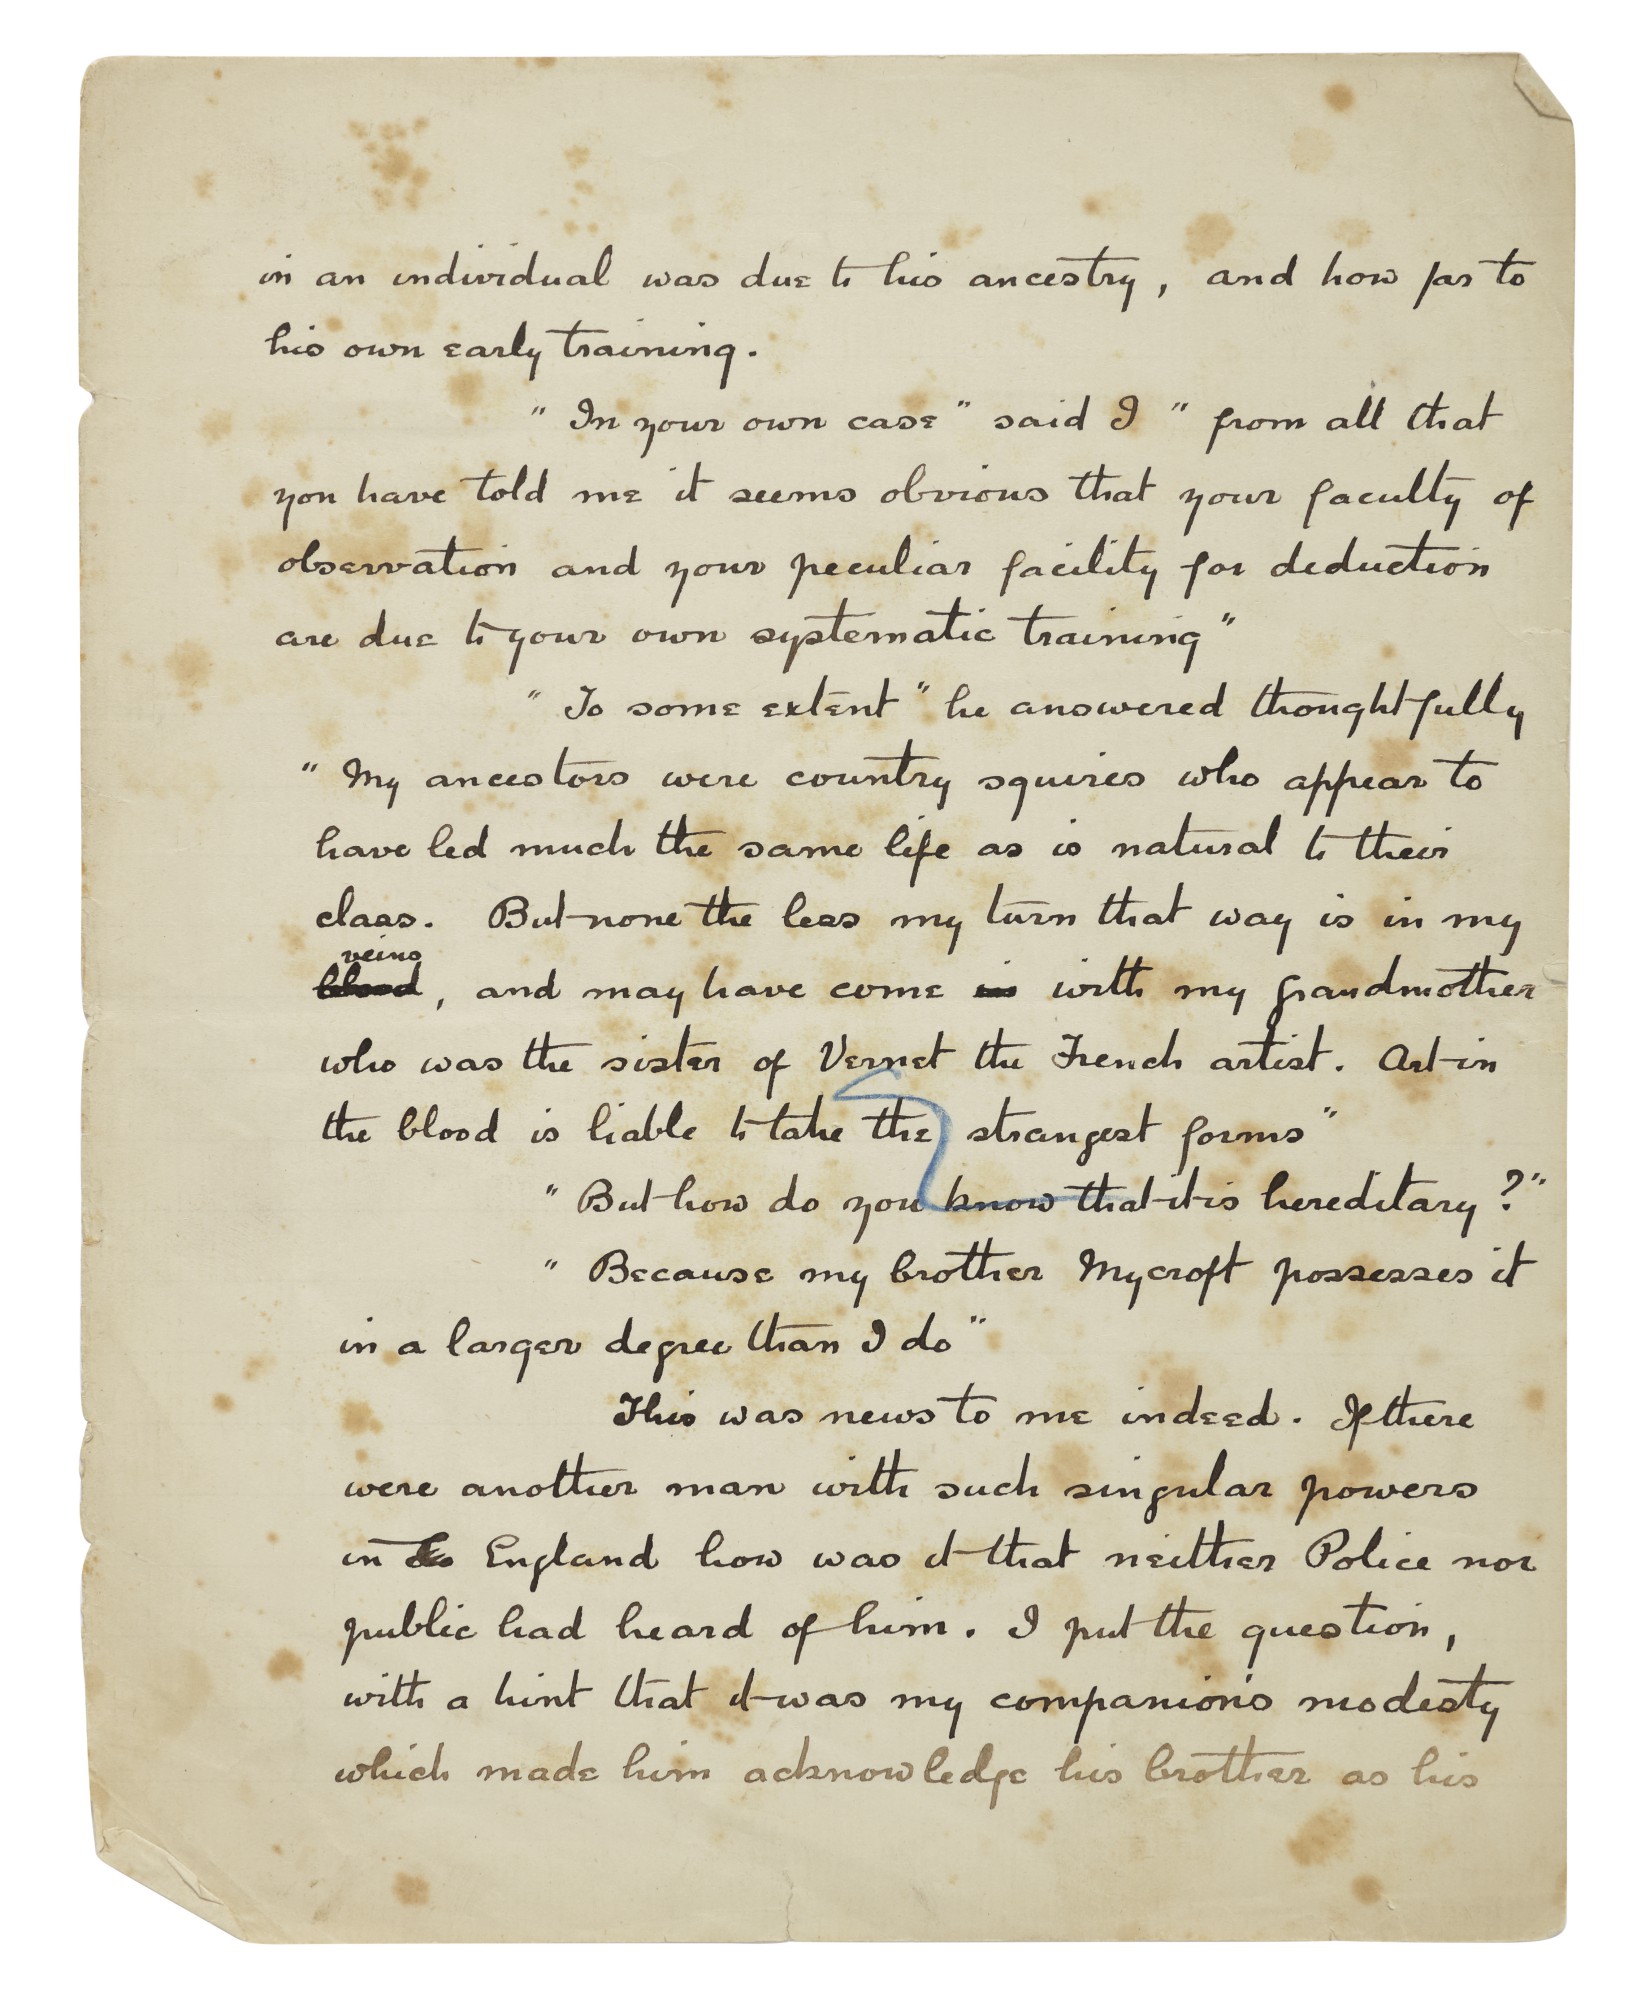 in an individual was due to his ancestry, and how far to
his own early training.
"In your own case" said I "from all that
you have told me it seems obvious that your faculty of
observation and your peculiar facility for deduction
are due to your own systematic training"
"To some extent" he answered thoughtfully
"My ancestors were country squires who appear to
have led much the same life as is natural to their
class. But none the less my turn that way is in my
veins
blood, and may have come in with my grandmother
who was the sister of Vernet the French artist. Art in
the blood is liable to take the strangest forms"
"But how do you know that it is hereditary?"
"Because my brother Mycroft possesses it
in a larger degree than I do"
This was news to me indeed. If there
were another man with such singular powers
in England how was it that neither Police nor
public had heard of him. I put the question,
with a hint that it was my companion's modesty
which made him acknowledge his brother as his